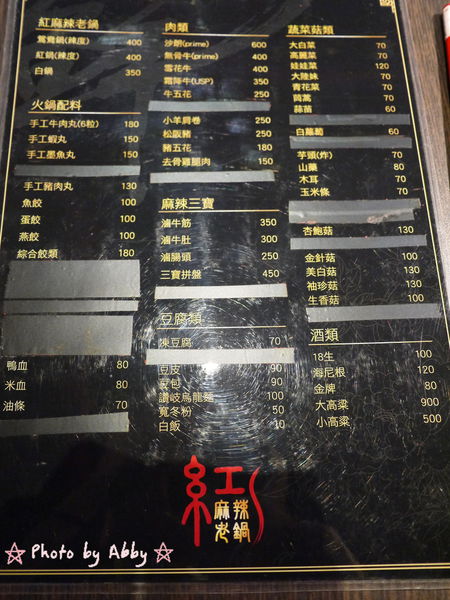 紅麻辣老鍋
鴛鴦鍋(辣度) 400
紅鍋(辣度) 400
白鍋 350
火鍋配料
手工牛肉丸(6粒) 180
手工蝦丸 150
手工墨魚丸 150
手工豬肉丸 130
魚餃 100
蛋餃 100
燕餃 100
綜合餃類 180
鴨血 80
米血 80
油條 70
肉類
沙朗(prime) 600
無骨牛(prime) 400
雪花牛 400
霜降牛(USP) 350
牛五花 250
小羊肩卷 250
松阪豬 250
豬五花 180
去骨雞腿肉 150
麻辣三寶
滷牛筋 350
滷牛肚 300
滷腸頭 250
三寶拼盤 450
豆腐類
凍豆腐 70
豆皮 90
豆包 90
讚岐烏龍麵 100
寬冬粉 50
白飯 10
蔬菜菇類
大白菜 70
高麗菜 70
娃娃菜 120
大陸妹 70
青花菜 70
茼蒿 70
蒜苗 60
白蘿蔔 60
芋頭(炸) 70
山藥 80
木耳 70
玉米條 70
杏鮑菇 130
金針菇 100
美白菇 130
袖珍菇 130
生香菇 100
酒類
18生 100
海尼根 120
金牌 80
大高粱 900
小高粱 500
紅
麻辣
老鍋
Photo by Abby